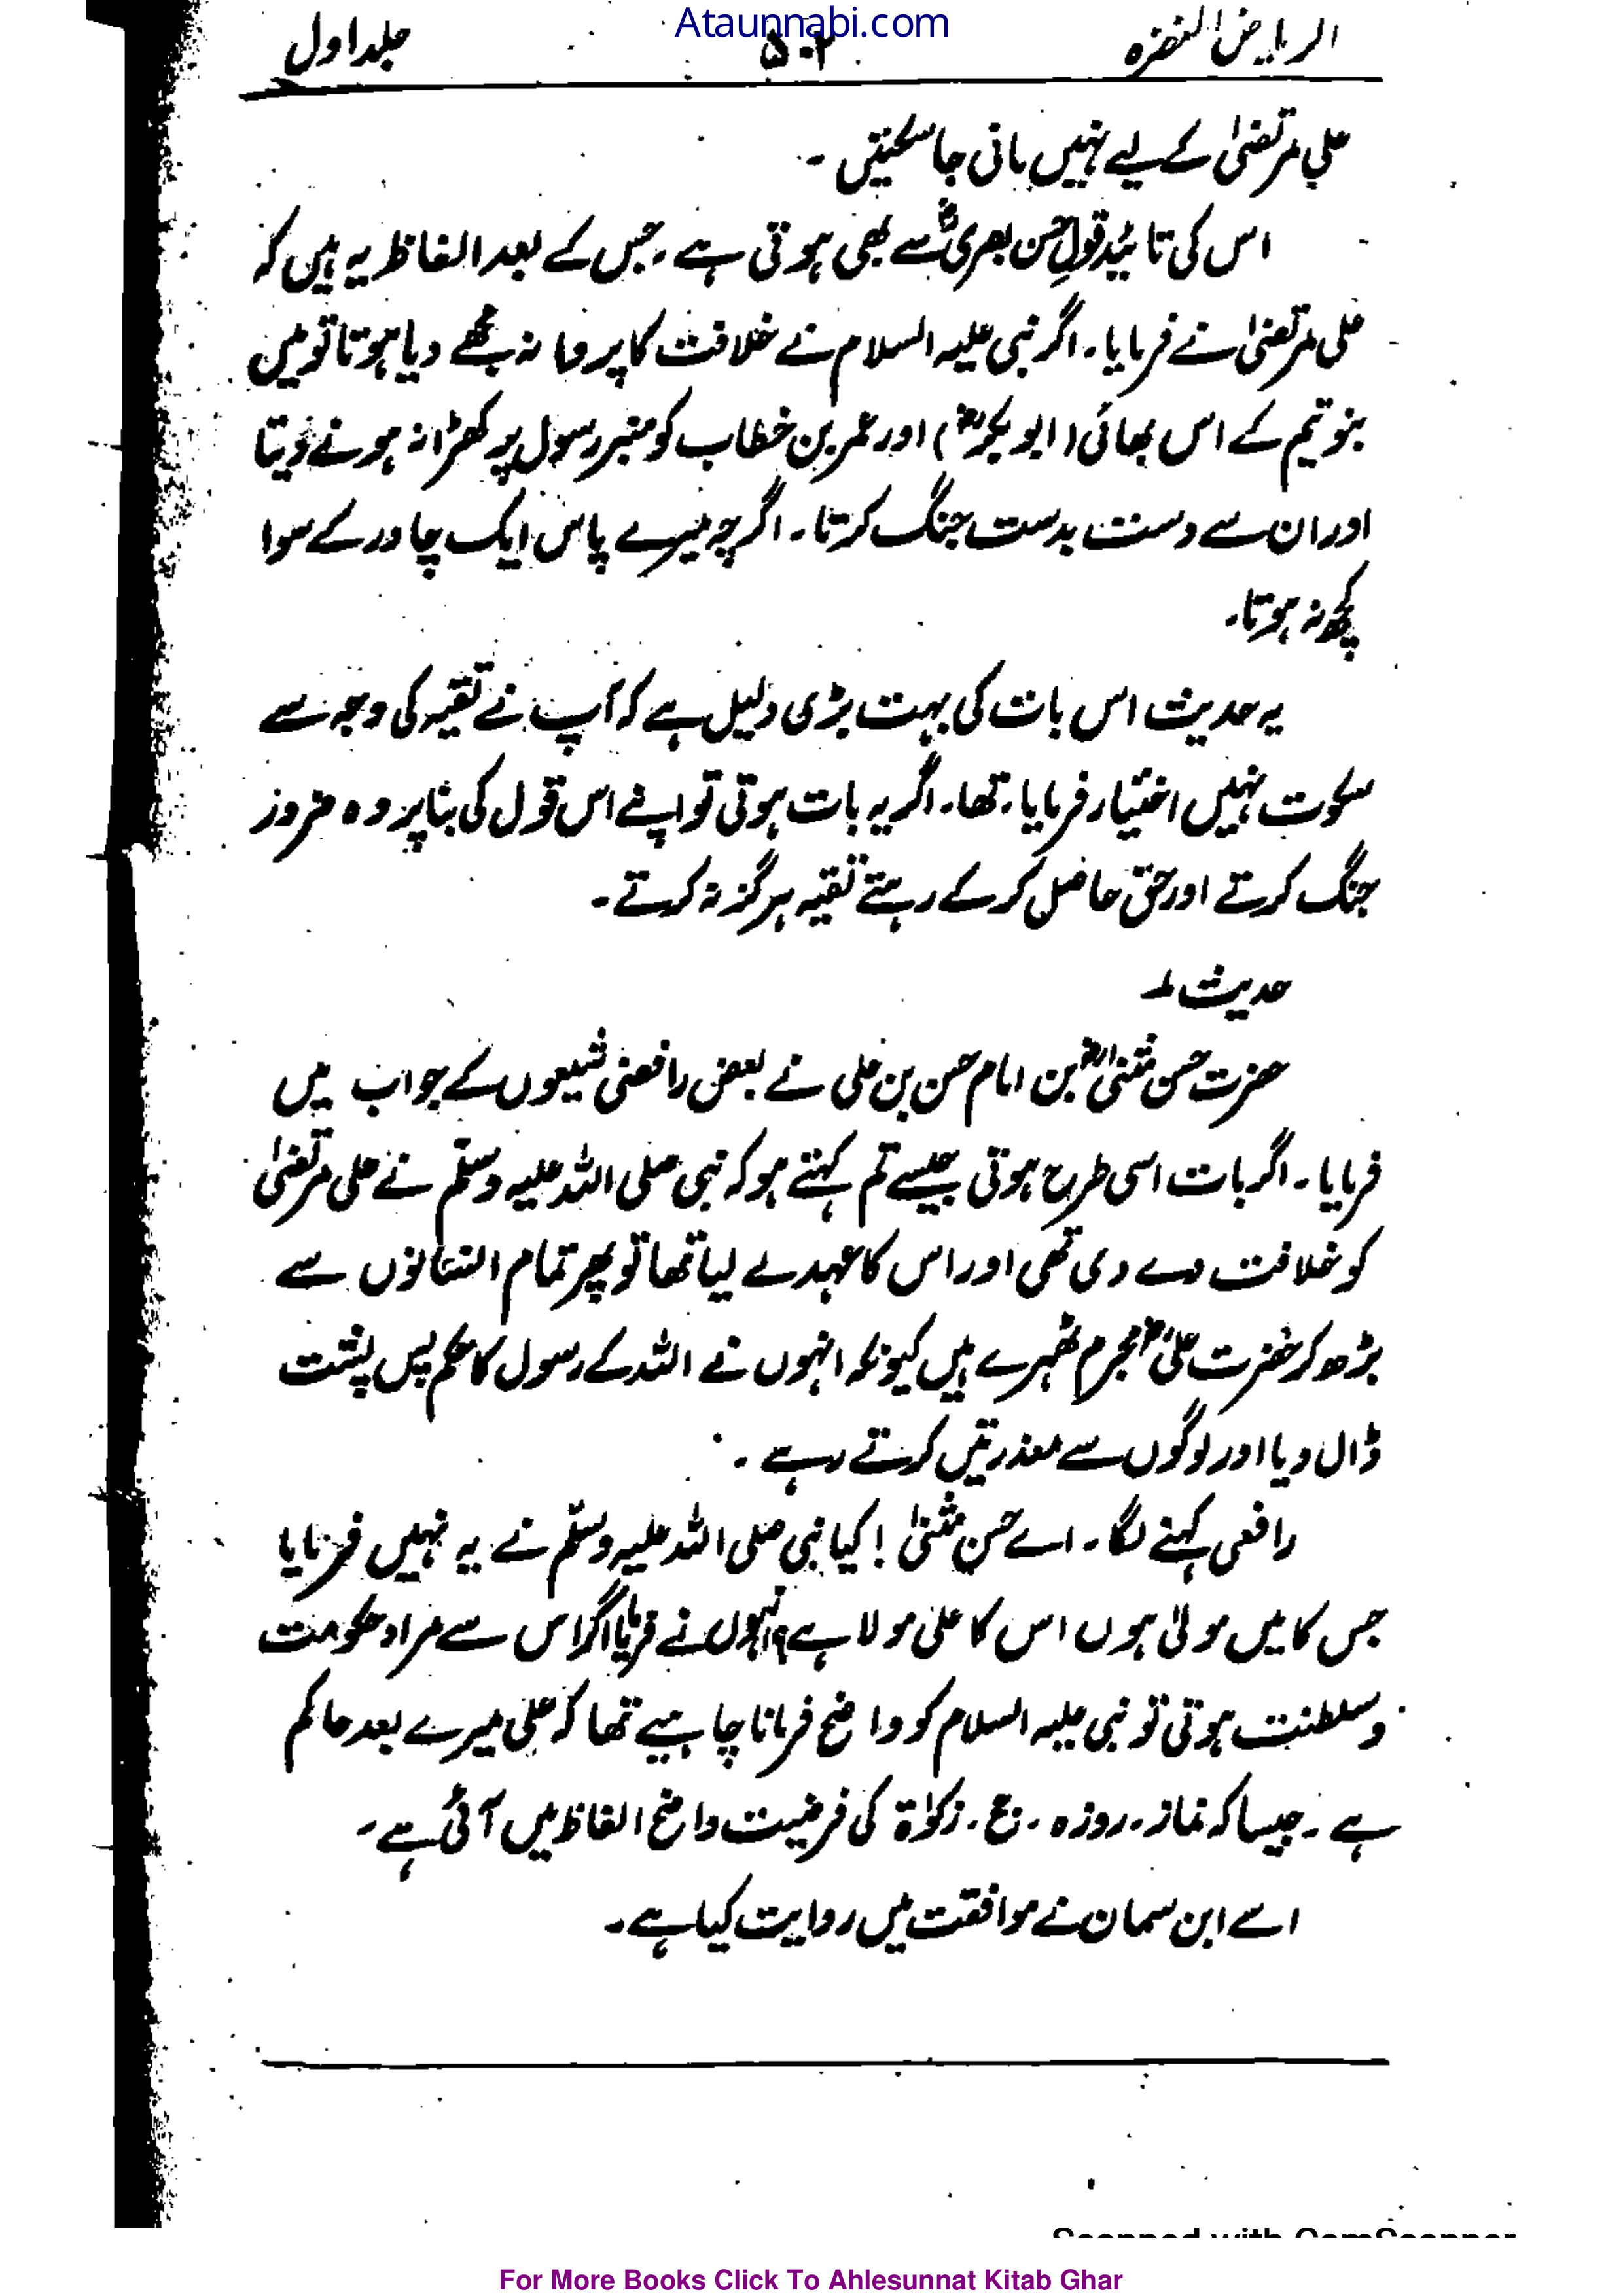 Ataunnabi.com
الریاض النضرہ ۵۰۲ جلد اول
علی مرتضیٰ کے لیے نہیں مانی جا سکتیں ۔
اس کی تائید قولِ حسن بصری سے بھی ہوتی ہے ۔ جس کے بعد الفاظ یہ ہیں کہ
علی مرتضیٰ نے فرمایا ۔ اگر نبی علیہ السلام نے خلافت کا پروانہ مجھے دیا ہوتا تو میں
بنو تیم کے اس بھائی (ابوبکرؓ) اور عمر بن خطاب کو منبر رسول پر کھڑا نہ ہونے دیتا
اور ان سے دست بدست جنگ کرتا ۔ اگرچہ میرے پاس ایک چادر کے سوا
کچھ نہ ہوتا ۔
یہ حدیث اس بات کی بہت بڑی دلیل ہے کہ آپ نے تقیہ کی وجہ سے
سکوت نہیں اختیار فرمایا ۔ تھا ۔ اگر یہ بات ہوتی تو اپنے اس قول کی بنا پر وہ ضرور
جنگ کرتے اور حق حاصل کر کے رہتے تقیہ ہرگز نہ کرتے ۔
حدیث
حضرت حسن مثنیٰ بن امام حسن بن علی نے بعض رافضی شیعوں کے جواب میں
فرمایا ۔ اگر بات اسی طرح ہوتی جیسے تم کہتے ہو کہ نبی صلی اللہ علیہ وسلّم نے علی مرتضیٰ
کو خلافت دے دی تھی اور اس کا عہد لے لیا تھا تو پھر تمام انسانوں سے
بڑھ کر حضرت علیؓ مجرم ٹھہرے ہیں کیونکہ انہوں نے اللہ کے رسول کا حکم پس پشت
ڈال دیا اور لوگوں سے معذرتیں کرتے رہے ۔
رافضی کہنے لگا ۔ اے حسن مثنیٰ ! کیا نبی صلی اللہ علیہ وسلّم نے یہ نہیں فرمایا
جس کا میں مولیٰ ہوں اس کا علی مولا ہے؟ انہوں نے فرمایا اگر اس سے مراد حکومت
و سلطنت ہوتی تو نبی علیہ السلام کو واضح فرمانا چاہیے تھا کہ علی میرے بعد حاکم
ہے ۔ جیسا کہ نماز ۔ روزہ ۔ حج ۔ زکوٰۃ کی فرضیت واضح الفاظ میں آئی ہے ۔
اسے ابن سمان نے موافقت میں روایت کیا ہے ۔
For More Books Click To Ahlesunnat Kitab Ghar